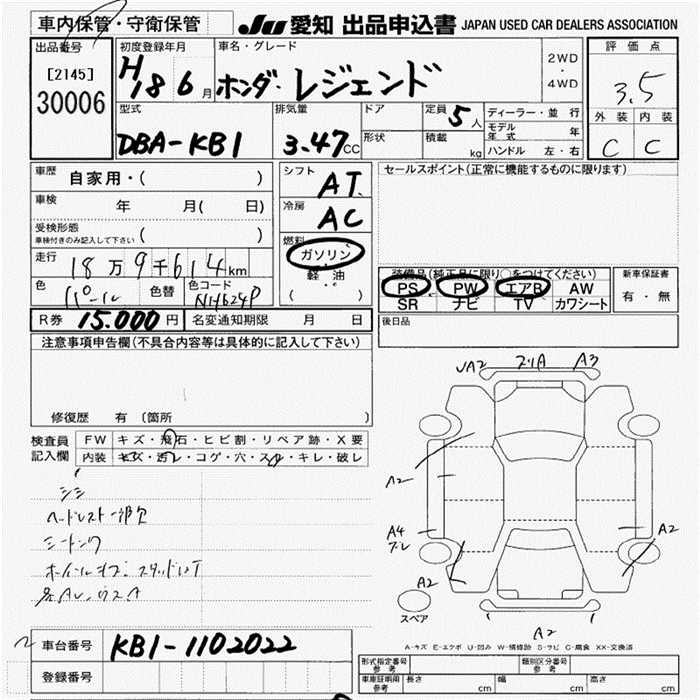 車内保管・守衛保管
JU 愛知 出品申込書 JAPAN USED CAR DEALERS ASSOCIATION
出品番号
[2145]
30006
初度登録年月
H18 6 月
車名・グレード
ホンダ・レジェンド
2WD
・
4WD
評価点
3.5
外装 内装
C C
型式
DBA-KB1
排気量
3.47 CC
ドア
形状
定員 5 人
積載 kg
ディーラー・並行
モデル年式 年
ハンドル 左・右
車歴
自家用・( )
車検
年 月( 日)
受検形態
車検付きのみ記入して下さい ( )
走行
18万9千614km
色
色替
色コード
シフト
AT
冷房
AC
燃料
ガソリン
軽油
( )
セールスポイント(正常に機能するものに限ります)
装備品(純正品に限り○をつけてください)
PS PW エアB AW
SR ナビ TV カワシート
新車保証書
有・無
後日品
R券 15.000 円
名変通知期限 月 日
注意事項申告欄(不具合内容等は具体的に記入して下さい)
修復歴 有 〔箇所
検査員記入欄
FW キズ・飛石・ヒビ割・リペア跡・X要
内装 キズ・汚レ・コゲ・穴・スレ・キレ・破レ
ヘッドレスト一部欠
UA2
A3
A2
A4
A2
A2
A2
スペア
A-キズ E-エクボ U-凹み W-補修跡 S-サビ C-腐食 XX-交換済
車台番号 KB1-1102022
登録番号
型式指定番号 参考
類別区分番号 参考
車庫証明用 参考
長さ cm
幅 cm
高さ cm